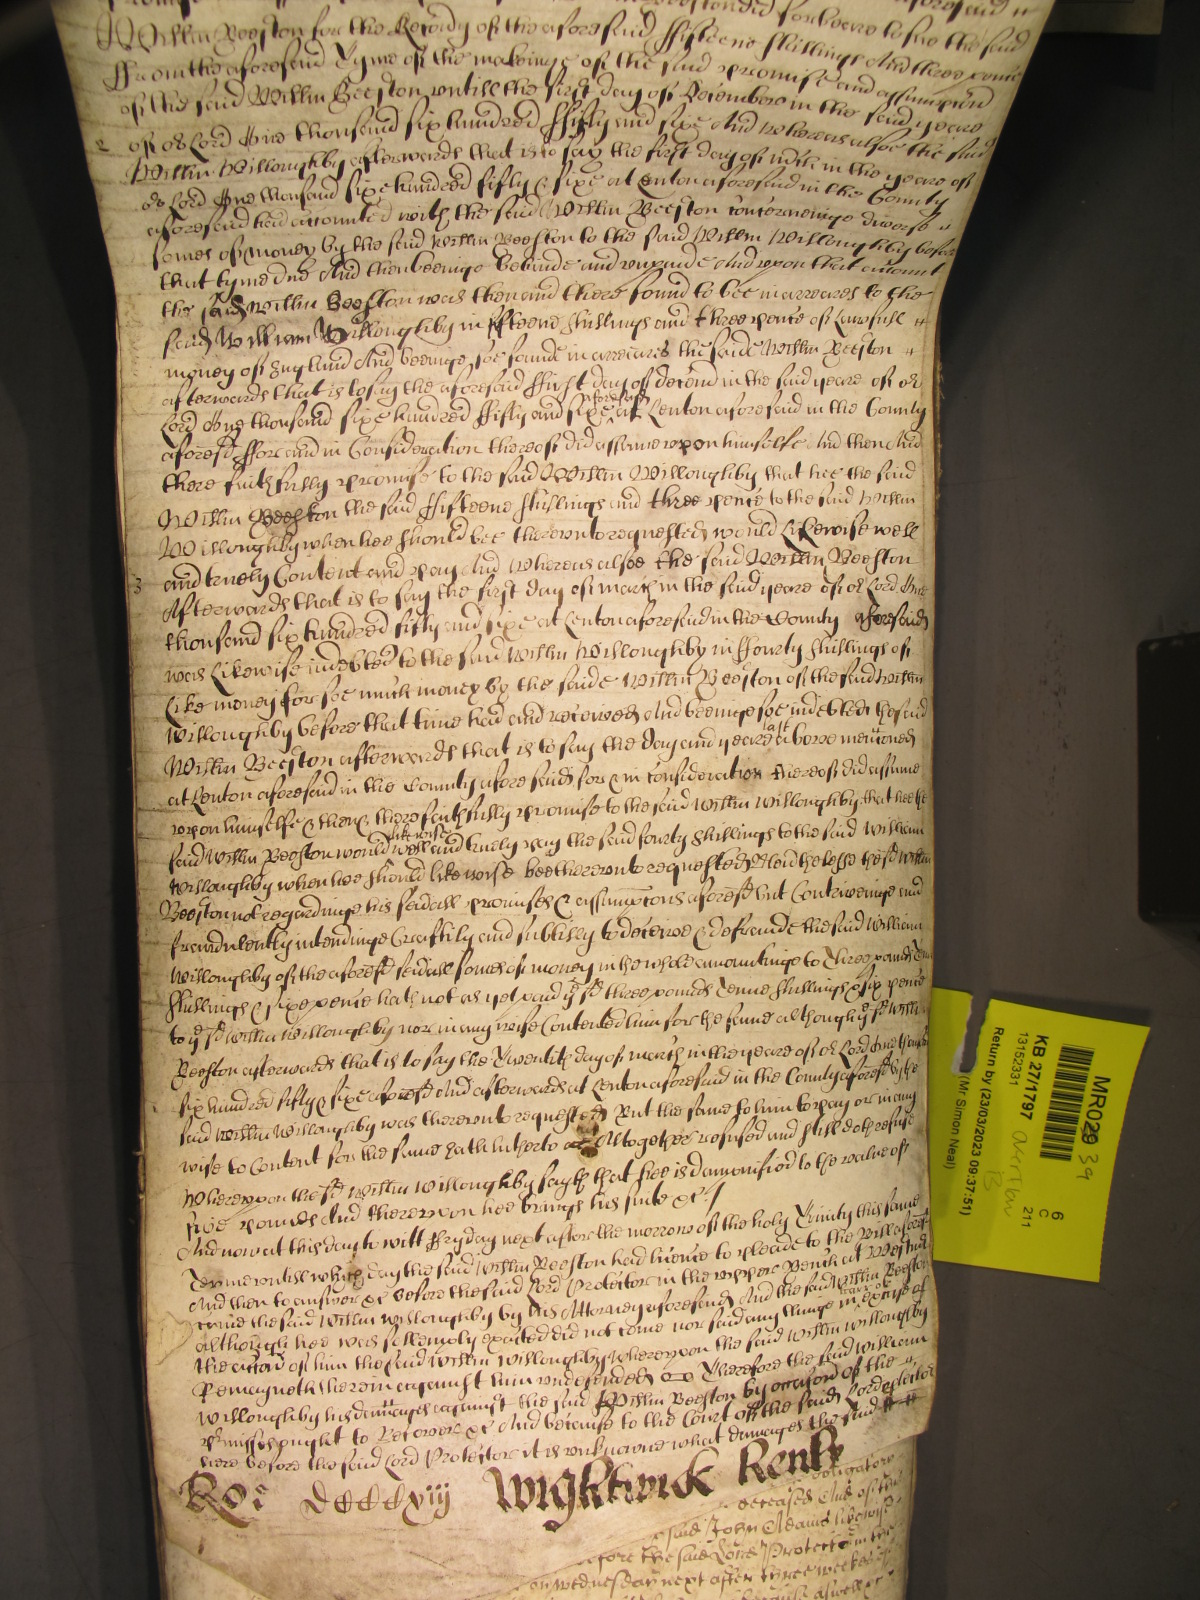 Willm Beeston for the Recovery of the aforesaid ffifteene shillings And three pence
ffrom the aforesaid Tyme of the makeinge of the said promise and assumpcon
of the said Willm Beeston untill the first day of December in the said yeare
2 of or Lord One thousand six hundred ffifty and sixe And whereas alsoe the said
Willm Willoughby afterwards that is to say the first day of in the yeare of
or Lord One thousand sixe hundred fifty & sixe at Lenton aforesaid in the County
aforesaid had accounted with the said Willm Beeston concerneinge diverse
somes of money by the said Willm Beeston to the said Willm Willoughby before
that tyme due And then beeinge behinde and unpaide And upon that account
the said Willm Beeston was then and there found to bee in arreares to the
said William Willoughby in ffifteene shillings and three pence of Lawfull
money of England And beeinge soe founde in arreares the saide Willm Beeston
afterwards that is to say the aforesaid ffirst day of in the said yeare of or
Lord One thousand six hundred ffifty and sixe aforesaid at Lenton aforesaid in the County
aforesd ffor and in Consideration thereof did assume upon himselfe And then And
there faithfully promise to the said Willm Willoughby that hee the said
Willm Beeston the said ffifteene shillings and three pence to the said Willm
Willoughby when hee should bee thereunto requested would Likewise well
and truely Content and pay And whereas alsoe the said Willm Beeston
3 Afterwards that is to say the first day of march in the said yeare of or Lord One
thousand six hundred fifty and sixe at Lenton aforesaid in the County aforesaid
was Likewise indebted to the said Willm Willoughby in ffourty shillings of
Like money for soe much money by the saide Willm Beeston of the said Willm
Willoughby before that time had and received And beeinge soe indebted the said
Willm Beeston afterwards that is to say the day and yeare last above mencioned
at Lenton aforesaid in the County aforesaid for & in consideration thereof did assume
upon himselfe & then & there faithfully promise to the said Willm Willoughby that hee the
said Willm Beeston would likewise well and truely pay the said fourty shillings to the said William
Willoughby when hee should likewise bee thereunto requested Neverthelesse the sd Willm
Beeston not regardinge his said promises & assumptons aforesd but Contriveinge and
fraudulently intendinge Craftily and subtilly to deceive & defraude the said William
Willoughby of the aforesd somes of money in the whole amountinge to Three pounds Tenne
shillings & sixe pence hath not as yet paid ye sd three pounds Tenne shillings & six pence
to ye sd Willm Willoughby nor in any wise Contented him for the same although ye sd Willm
Beeston afterwards that is to say the Twentith day of march in the yeare of or Lord One thousand
six hundred fifty & sixe aforesd And afterwards at Lenton aforesaid in the County aforesd by the
said Willm Willoughby was thereunto requested But the same to him to pay or in any
wise to Content for the same hath hitherto Altogether refused and still doth refuse
Whereupon the sd Willm Willoughby sayth that hee is damnified to the value of
five pounds And thereupon hee brings his suite &c
And now at this day to witt ffryday next after the morrow of the holy Trinity this same
Terme untill which day the said Willm Beeston had licence to pleade to the Bill aforesd
And then to answer &c before the said Lord Protector in the upper Bench at Westmr
came the said Willm Willoughby by his Attorney aforesaid And the said Willm Beeston
although hee was sollemnly exacted did not come nor said any thinge in barr or excuse of
the accon of him the said Willm Willoughby Whereupon the said Willm Willoughby
Remayneth therein against him undefended Therefore the said William
Willoughby his damages against the said Willm Beeston by occasion of the
prmisses ought to Recover &c And because to the Court of the said Lord protector
here before the said Lord Protector it is unknowne what damages the said
Ro: DCCCCxiij Wightwick Kent
obligatore
deceased And of the
said John Adams likewise
before the said Lord Protector in the
on Wednesday next after three weekes
aswell
MR029 39
KB 27/1797
13152331
Return by (23/03/2023 09:37:51)
(Mr Simon Neal)
6
C
211